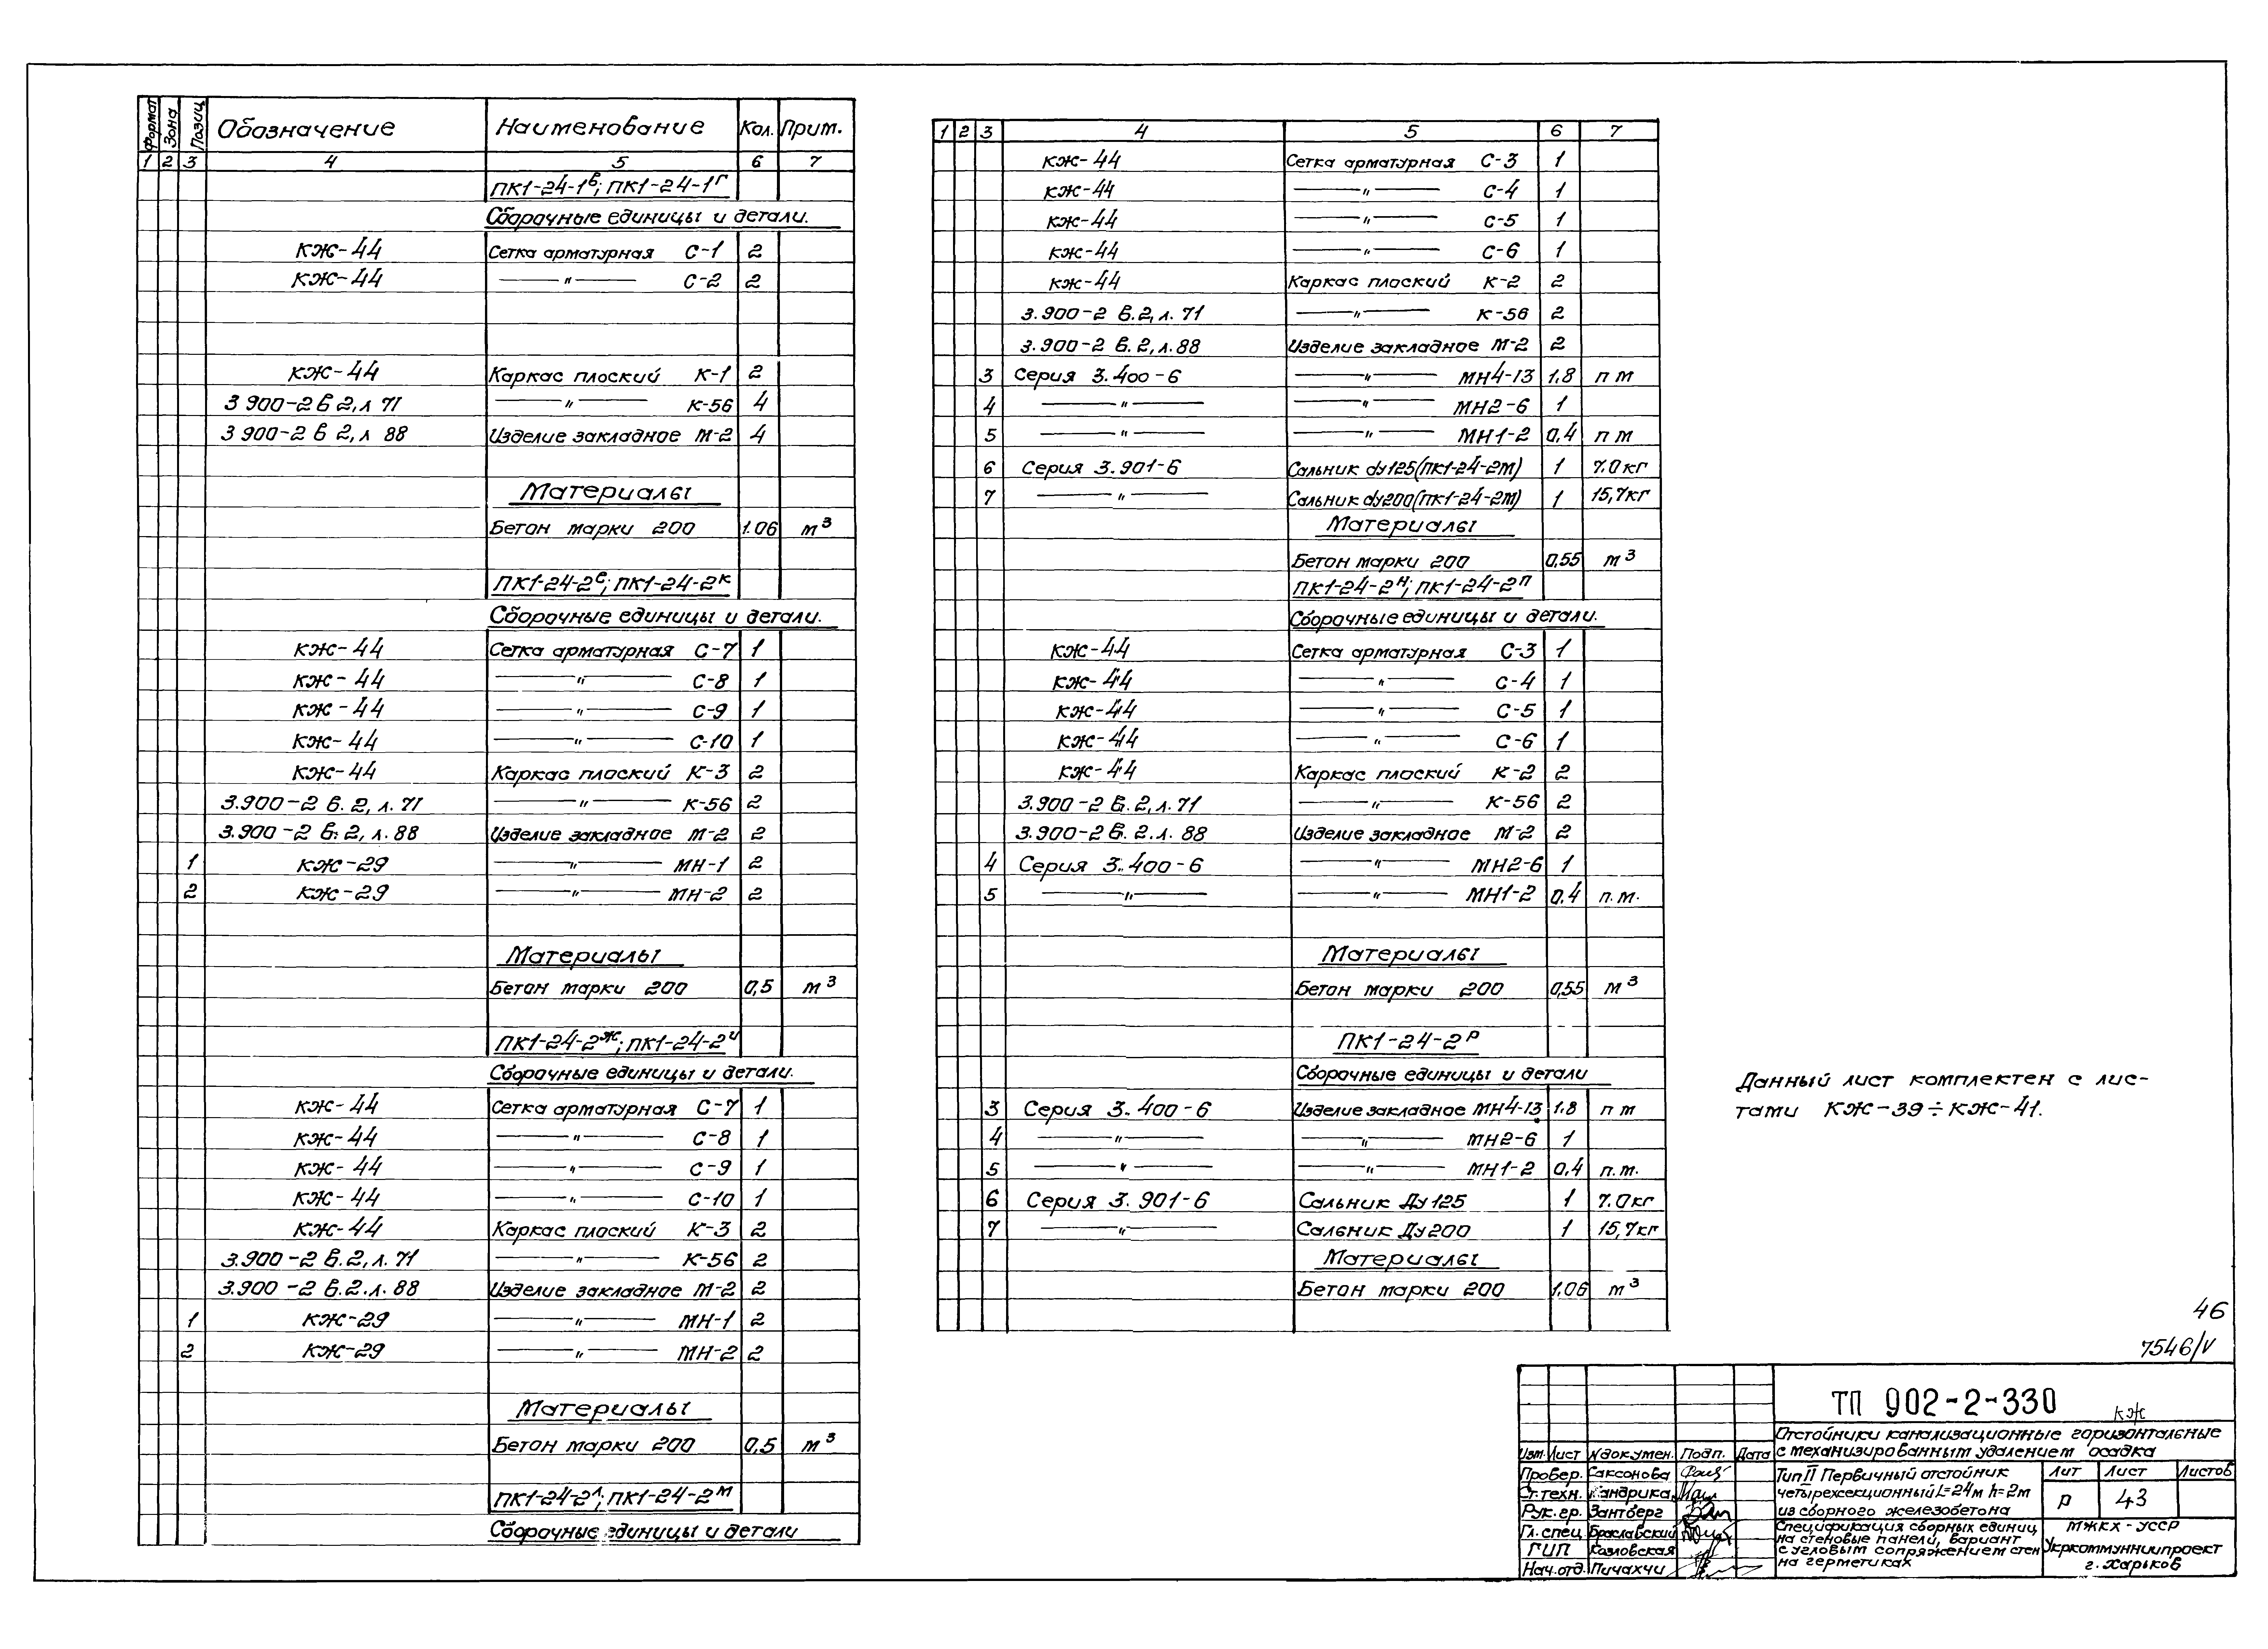 Формат Зона Позиц. Обозначение Наименование Кол. Прим.
1 2 3 4 5 6 7
ПК1-24-1в; ПК1-24-1г
Сборочные единицы и детали.
КЖ-44 Сетка арматурная С-1 2
КЖ-44 —"— С-2 2
КЖ-44 Каркас плоский К-1 2
3 900-2 в 2, л 71 —"— К-56 4
3 900-2 в 2, л 88 Изделие закладное М-2 4
Материалы
Бетон марки 200 1.06 м³
ПК1-24-2е; ПК1-24-2к
Сборочные единицы и детали.
КЖ-44 Сетка арматурная С-7 1
КЖ-44 —"— С-8 1
КЖ-44 —"— С-9 1
КЖ-44 —"— С-10 1
КЖ-44 Каркас плоский К-3 2
3.900-2 в. 2, л. 71 —"— К-56 2
3.900-2 в. 2, л. 88 Изделие закладное М-2 2
1 КЖ-29 —"— МН-1 2
2 КЖ-29 —"— МН-2 2
Материалы
Бетон марки 200 0,5 м³
ПК1-24-2ж; ПК1-24-2и
Сборочные единицы и детали.
КЖ-44 Сетка арматурная С-7 1
КЖ-44 —"— С-8 1
КЖ-44 —"— С-9 1
КЖ-44 —"— С-10 1
КЖ-44 Каркас плоский К-3 2
3.900-2 в. 2, л. 71 —"— К-56 2
3.900-2 в. 2. л. 88 Изделие закладное М-2 2
1 КЖ-29 —"— МН-1 2
2 КЖ-29 —"— МН-2 2
Материалы
Бетон марки 200 0,5 м³
ПК1-24-2л; ПК1-24-2м
Сборочные единицы и детали
1 2 3 4 5 6 7
КЖ-44 Сетка арматурная С-3 1
КЖ-44 —"— С-4 1
КЖ-44 —"— С-5 1
КЖ-44 —"— С-6 1
КЖ-44 Каркас плоский К-2 2
3.900-2 в. 2, л. 71 —"— К-56 2
3.900-2 в. 2, л. 88 Изделие закладное М-2 2
3 Серия 3.400-6 —"— МН4-13 1.8 п м
4 —"— —"— МН2-6 1
5 —"— —"— МН1-2 0,4 п м
6 Серия 3.901-6 Сальник dу125(ПК1-24-2м) 1 7.0кг
7 —"— Сальник dу200(ПК1-24-2м) 1 15,7кг
Материалы
Бетон марки 200 0,55 м³
ПК1-24-2н; ПК1-24-2п
Сборочные единицы и детали.
КЖ-44 Сетка арматурная С-3 1
КЖ-44 —"— С-4 1
КЖ-44 —"— С-5 1
КЖ-44 —"— С-6 1
КЖ-44 Каркас плоский К-2 2
3.900-2 в. 2, л. 71 —"— К-56 2
3.900-2 в. 2. л. 88 Изделие закладное М-2 2
4 Серия 3.400-6 —"— МН2-6 1
5 —"— —"— МН1-2 0,4 п.м.
Материалы
Бетон марки 200 0,55 м³
ПК1-24-2р
Сборочные единицы и детали
3 Серия 3.400-6 Изделие закладное МН4-13 1.8 п м
4 —"— —"— МН2-6 1
5 —"— —"— МН1-2 0,4 п.м.
6 Серия 3.901-6 Сальник Ду125 1 7.0кг
7 —"— Сальник Ду200 1 15,7кг
Материалы
Бетон марки 200 1.06 м³
Данный лист комплектен с лис-
тами КЖ-39÷КЖ-41.
46
7546/V
ТП 902-2-330 КЖ
Отстойники канализационные горизонтальные
с механизированным удалением осадка
Изм. Лист №докумен. Подп. Дата
Провер. Саксонова
Ст.техн. Кандрика
Рук.гр. Зантберг
Гл.спец. Браславский
ГИП Козловская
Нач.отд. Пичахчи
Тип II Первичный отстойник
четырехсекционный L=24м h=2м
из сборного железобетона
Лит Лист Листов
Р 43
Спецификация сборных единиц
на стеновые панели, вариант
с угловым сопряжением стен
на герметиках
МЖКХ-УССР
Укркоммунниипроект
г. Харьков